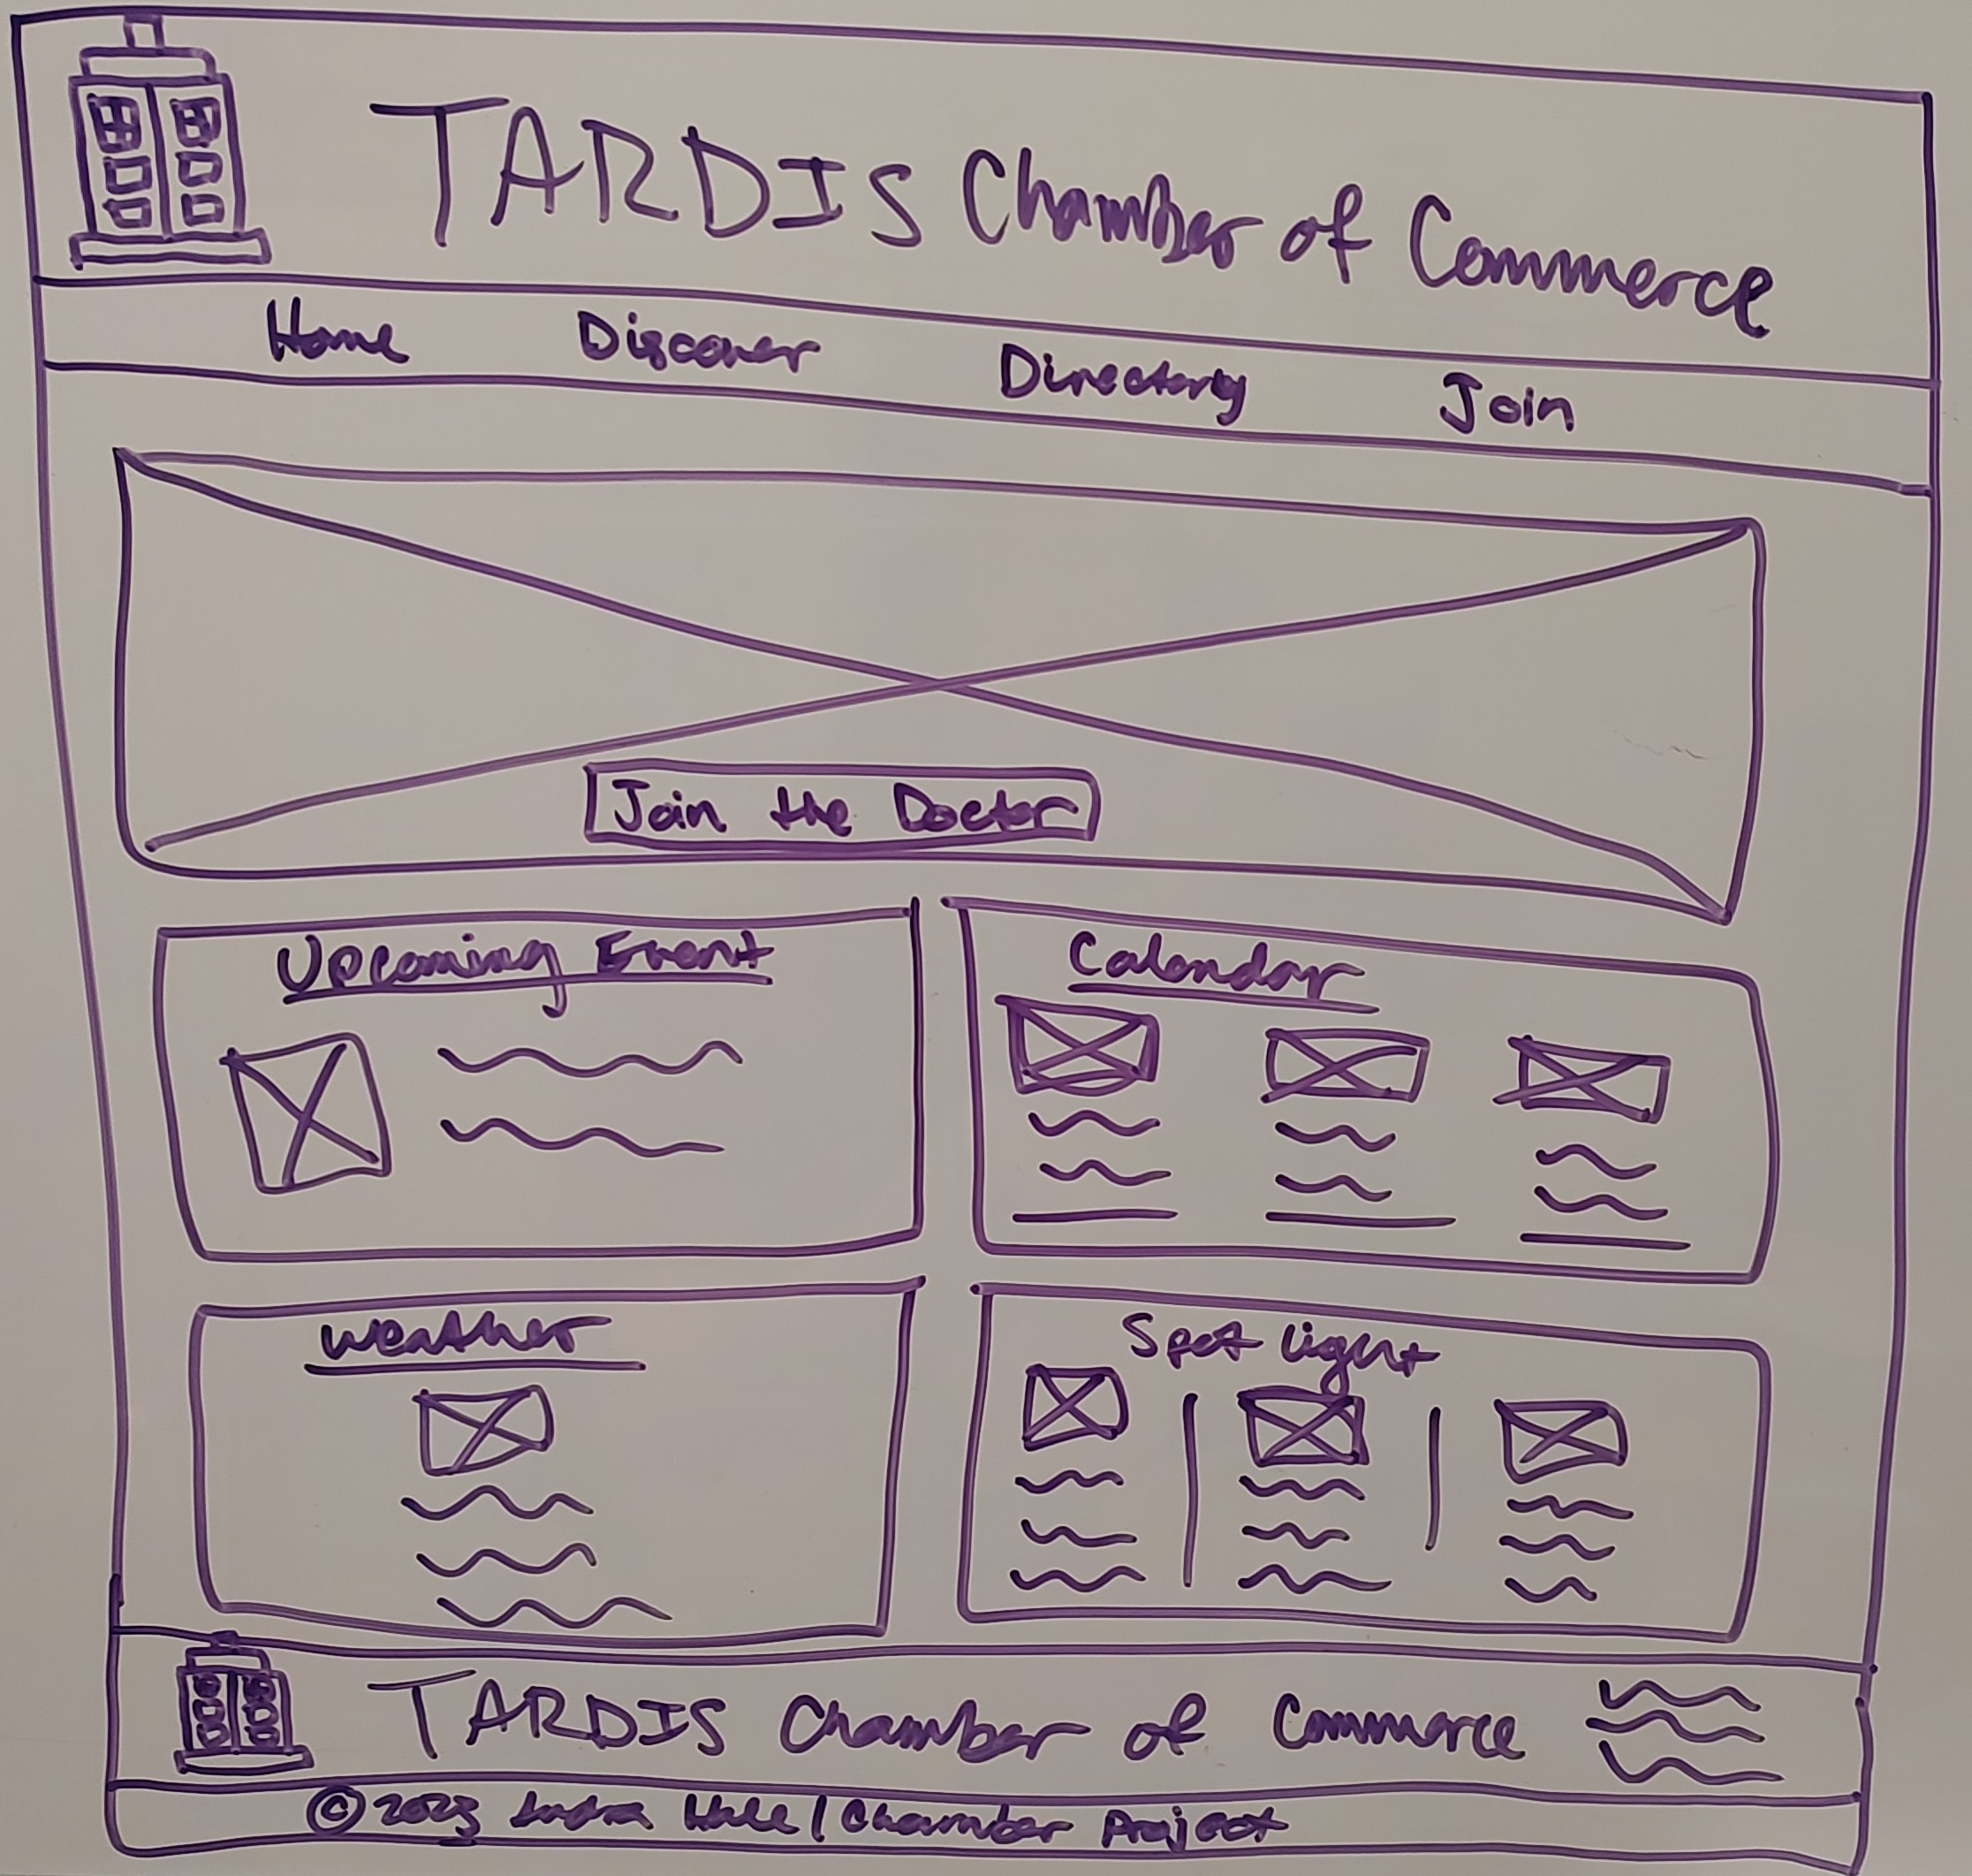 TARDIS Chamber of Commerce
Home Discover Directory Join
Join the Doctor
Upcoming Event
Calendar
Weather
Spot light
TARDIS Chamber of Commerce
© 2023 Hale | Chamber Project